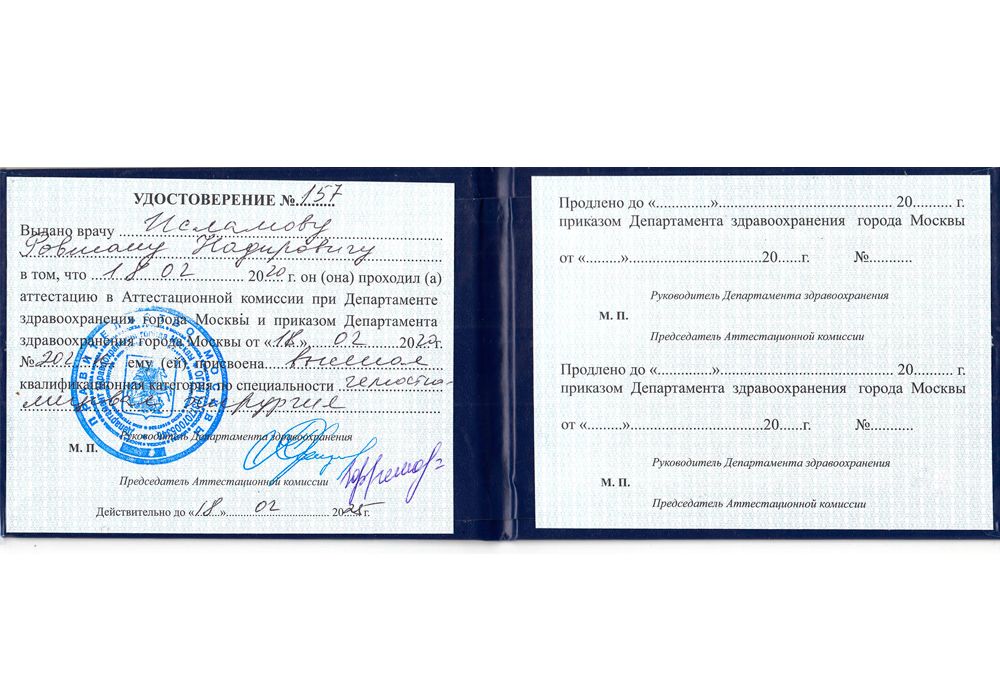 УДОСТОВЕРЕНИЕ № 157
Выдано врачу Исламову
Ровшану Надировичу
в том, что 18 02 2020 г. он (она) проходил (а)
аттестацию в Аттестационной комиссии при Департаменте
здравоохранения города Москвы и приказом Департамента
здравоохранения города Москвы от «18» 02 2020 г.
№ ему (ей) присвоена высшая
квалификационная категория по специальности
хирургия
Руководитель Департамента здравоохранения
М. П.
Председатель Аттестационной комиссии
Действительно до «18» 02 2025 г.
Продлено до «..............»............................................ 20.......... г.
приказом Департамента здравоохранения города Москвы
от «.........»...................................20.....г. №...........
Руководитель Департамента здравоохранения
М. П.
Председатель Аттестационной комиссии
Продлено до «..............»............................................ 20.......... г.
приказом Департамента здравоохранения города Москвы
от «.........»...................................20.....г. №...........
Руководитель Департамента здравоохранения
М. П.
Председатель Аттестационной комиссии